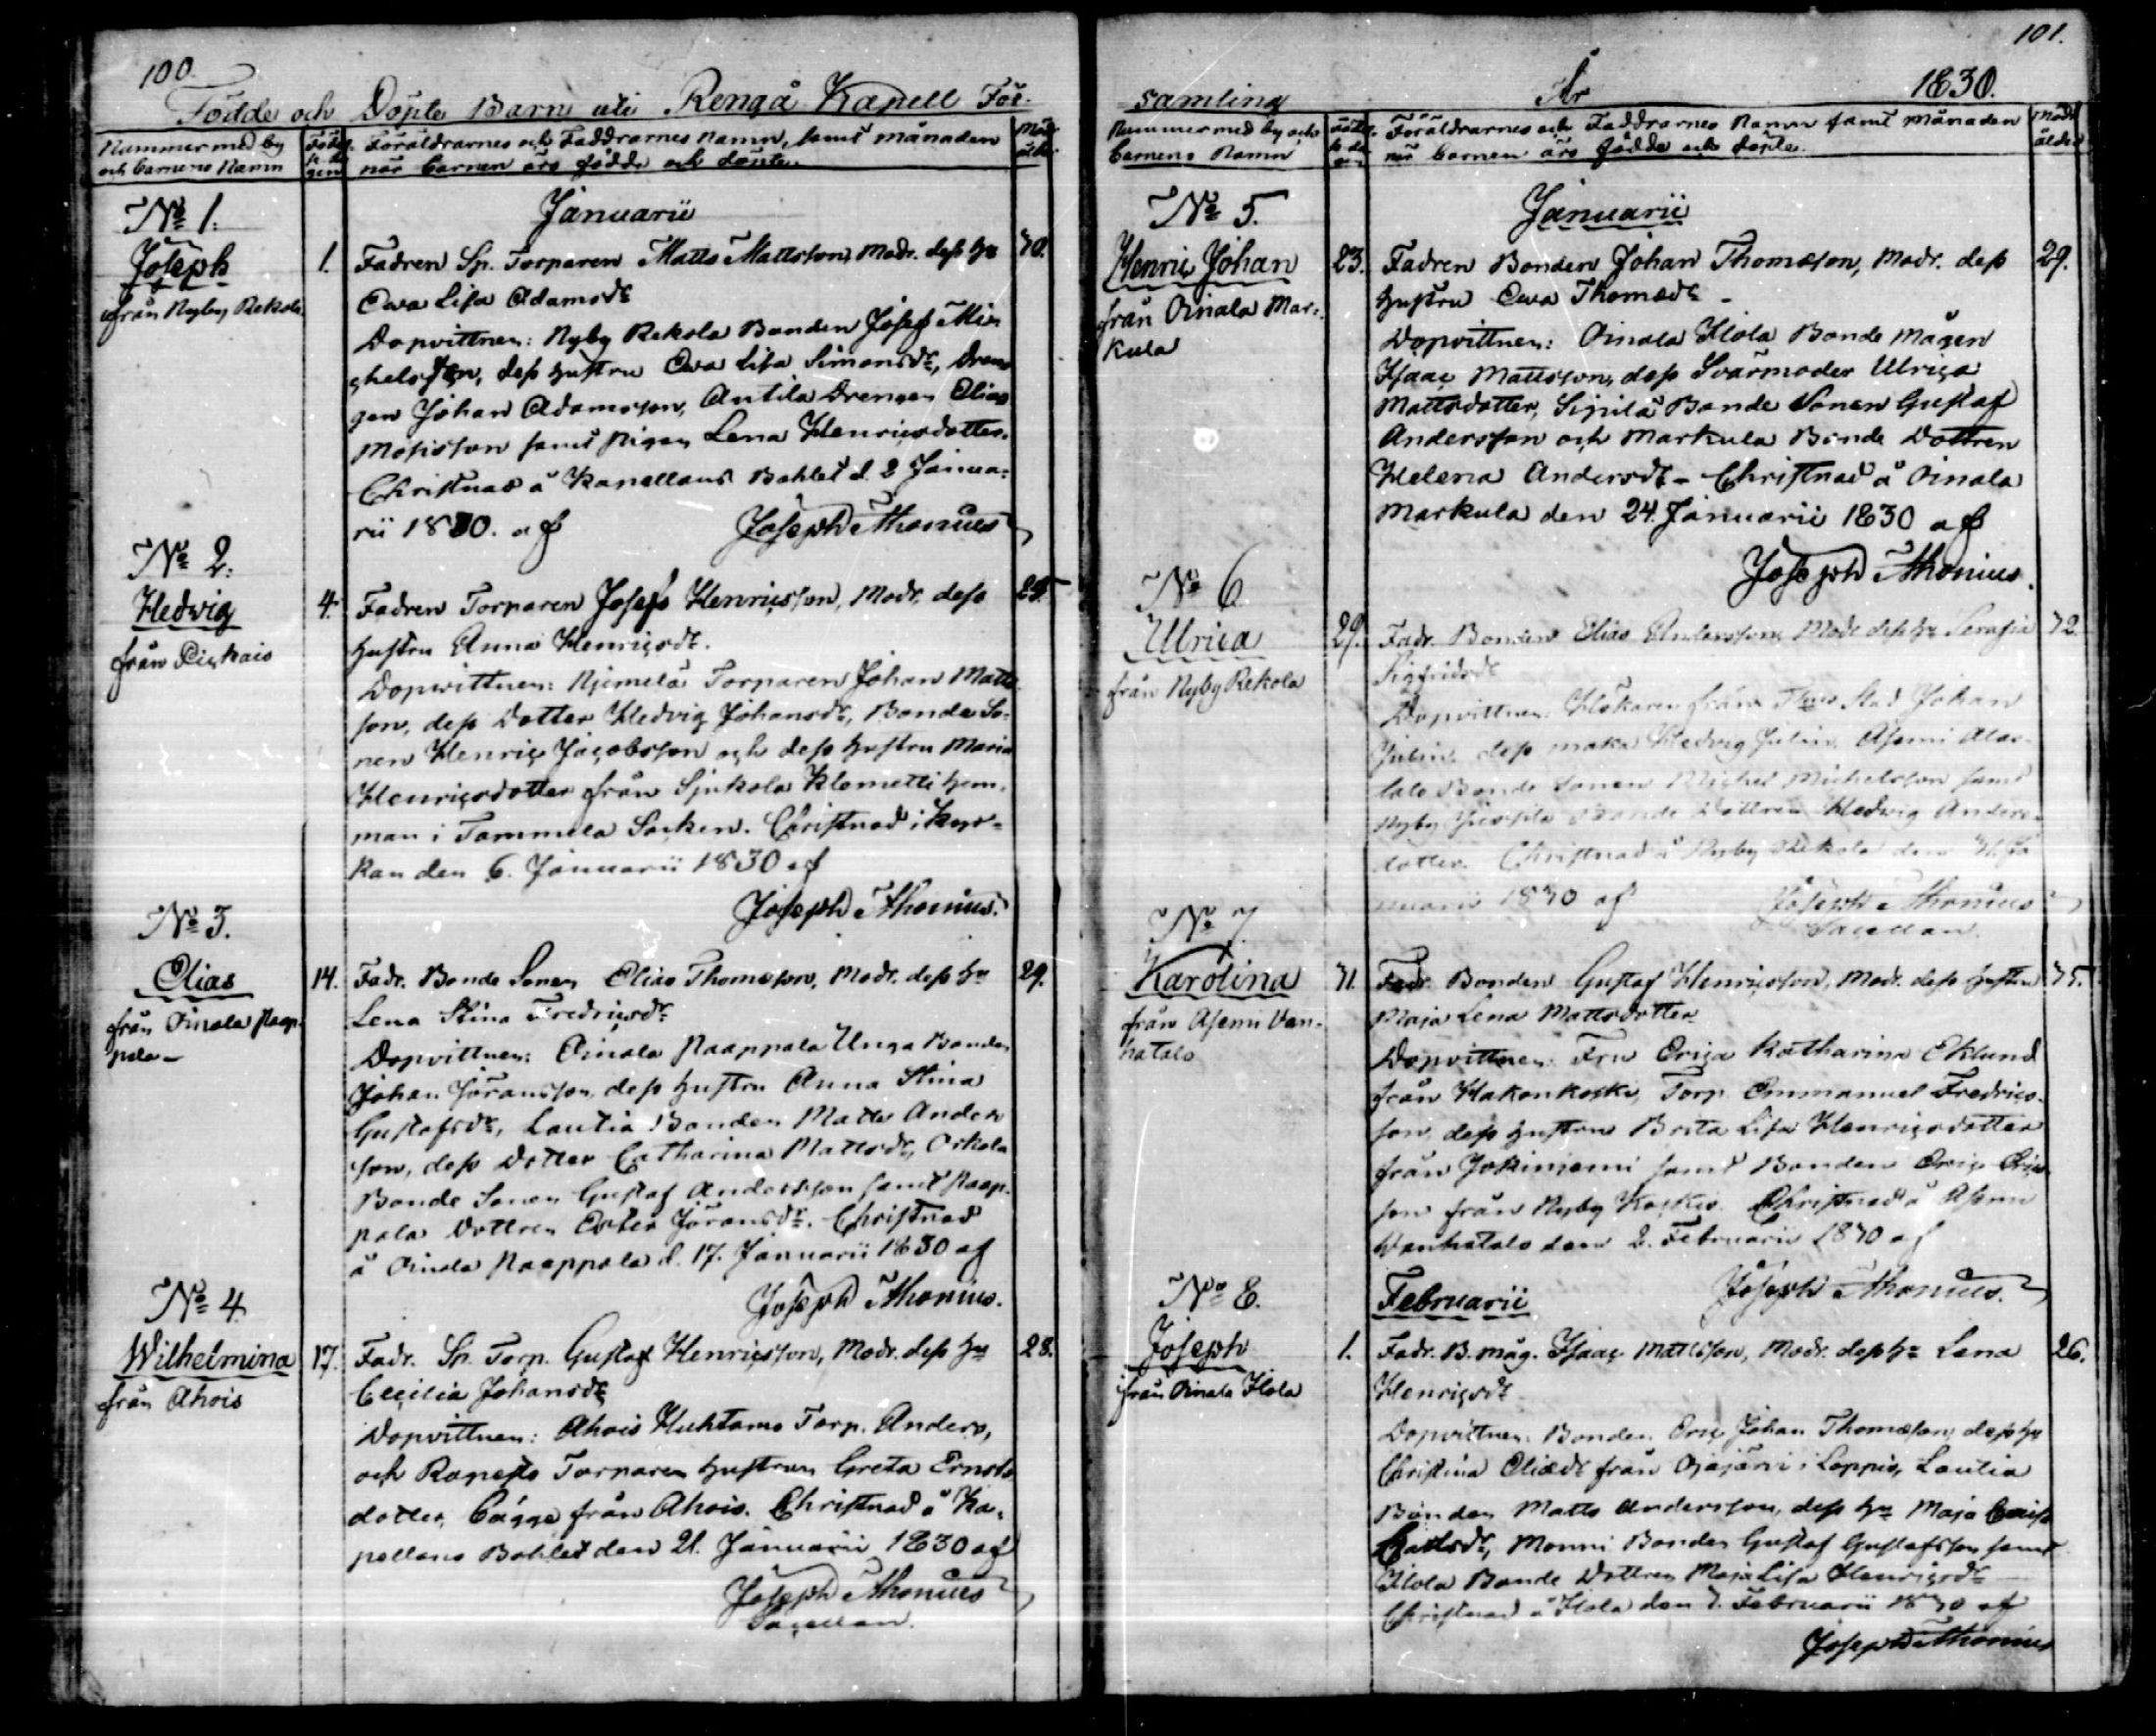 100.
Födde och Döpte Barn uti Rengå Kapell För-
Nummer med by
och barnens Namn
Föräldrarnes och Faddrarnes namn, samt månaden
när barnen äro födde och döpte.
Januarii
No 1.
Joseph
från Nyby Rekola
1.
Fadren Sp. Torparen Matts Mattsson, Modr. dess hu
30.
Ewa Lisa Adamsdr
Dopvittnen: Nyby Rekola Bonden Josef Mi-
chelsson, dess hustru Ewa Lisa Simonsdr, Dren-
gen Johan Adamsson, Antila Drengen Elias
Mosisson samt pigan Lena Henricsdotter.
Christnad å Kapellans Bohlet d. 2 Janua-
rii 1830. af Joseph Thonius
No 2.
Hedwig
från Pickais
4.
Fadren Torparen Josef Henricsson, Modr. dess
25.
hustru Anna Henricsdr.
Dopvittnen: Njemelä Torparen Johan Matts-
son, dess Dotter Hedvig Johansdr, Bonde So-
nen Henric Jacobsson och dess hustru Maria
Henricsdotter från Sjukola Klemetti hem-
man i Tammela Socken. Christnad i Kyr-
kan den 6. Januarii 1830 af
Joseph Thonius.
No 3.
Elias
från Oinala Paap-
pala
14.
Fadr. Bonde Sonen Elias Thomasson, Modr. dess hu
29.
Lena Stina Fredricsdr
Dopvittnen: Oinala Paappala Unga Bonden
Johan Jöransson, dess hustru Anna Stina
Gustafsdr, Lautia Bonden Matts Anders-
son, dess Dotter Catharina Mattsdr, Orkola
Bonde Sonen Gustaf Andersson samt Paap-
pala Dottren Ester Jöransdr. Christnad
å Oinala Paappala d. 17. Januarii 1830 af
Joseph Thonius.
No 4.
Wilhelmina
från Ahois
17.
Fadr. Sp. Torp. Gustaf Henricsson, Modr. dess hu
28.
Cecilia Johansdr
Dopvittnen: Ahois Huhtamo Torp. Anders,
och Torparen hustrun Greta Ernsts
dotter, bägge från Ahois. Christnad å Ka-
pellans Bohlet den 21. Januarii 1830 af
Joseph Thonius
Sacellan.
101.
samling År 1830.
Nummer med by och
barnens Namn
Föräldrarnes och Faddrarnes Namn samt månaden
när barnen äro födde och döpte.
Januarii
No 5.
Henric Johan
från Oinala Mar-
kula
23.
Fadren Bonden Johan Thomasson, Modr. dess
29.
hustru Ewa Thomædr
Dopvittnen: Oinala Ilola Bonde Mågen
Isaac Mattsson, dess Svärmoder Ulrica
Mattsdotter, Sipilä Bonde Sonen Gustaf
Andersson och Markula Bonde Dottren
Helena Andersdr - Christnad å Oinala
Markula den 24. Januarii 1830 af
Joseph Thonius.
No 6
Ulrica
från Nyby Rekola
29.
Fadr. Bonden Elias Andersson, Modr. dess hu Serafia
32.
Sigfridsdr
Dopvittnen: Hökaren från Stad Johan
Julin, dess maka Hedvig Julin, Asemi Alas-
talo Bonde Sonen Michel Michelsson samt
Nyby Bonde Dottren Hedwig Anders-
dotter. Christnad å Nyby Rekola den 31. Ja-
nuarii 1830 af Joseph Thonius
Sacellan.
No 7
Karolina
från Asemi Van-
hatalo
31.
Fadr. Bonden Gustaf Henricsson, Modr. dess hustru
35.
Maja Lena Mattsdotter
Dopvittnen: Fru Erica Katharina Eklund
från Hakonkoski, Torp. Emmanuel Fredrics-
son, dess hustru Brita Lisa Henricsdotter
från Jokiniemi samt Bonden Eric Eric-
son från Nyby Koskis. Christnad å Asemi
Vanhatalo den 2. Februarii 1830 af
Joseph Thonius.
Februarii
No 8.
Joseph
från Oinala Ilola
1.
Fadr. B. måg. Isaac Mattsson, Modr. dess hu Lena
26.
Henricsdr
Dopvittnen: Bonden Eric Johan Thomasson, dess hu
Christina Eliædr från Ojajärvi i Loppis, Lautia
Bonden Matts Andersson, dess hu Maja Caisa
Mattsdr, Monni Bonden Gustaf Gustafsson samt
Ilola Bonde Dottren Maja Lisa Henricsdr
Christnad å Ilola den 7. Februarii 1830 af
Joseph Thonius